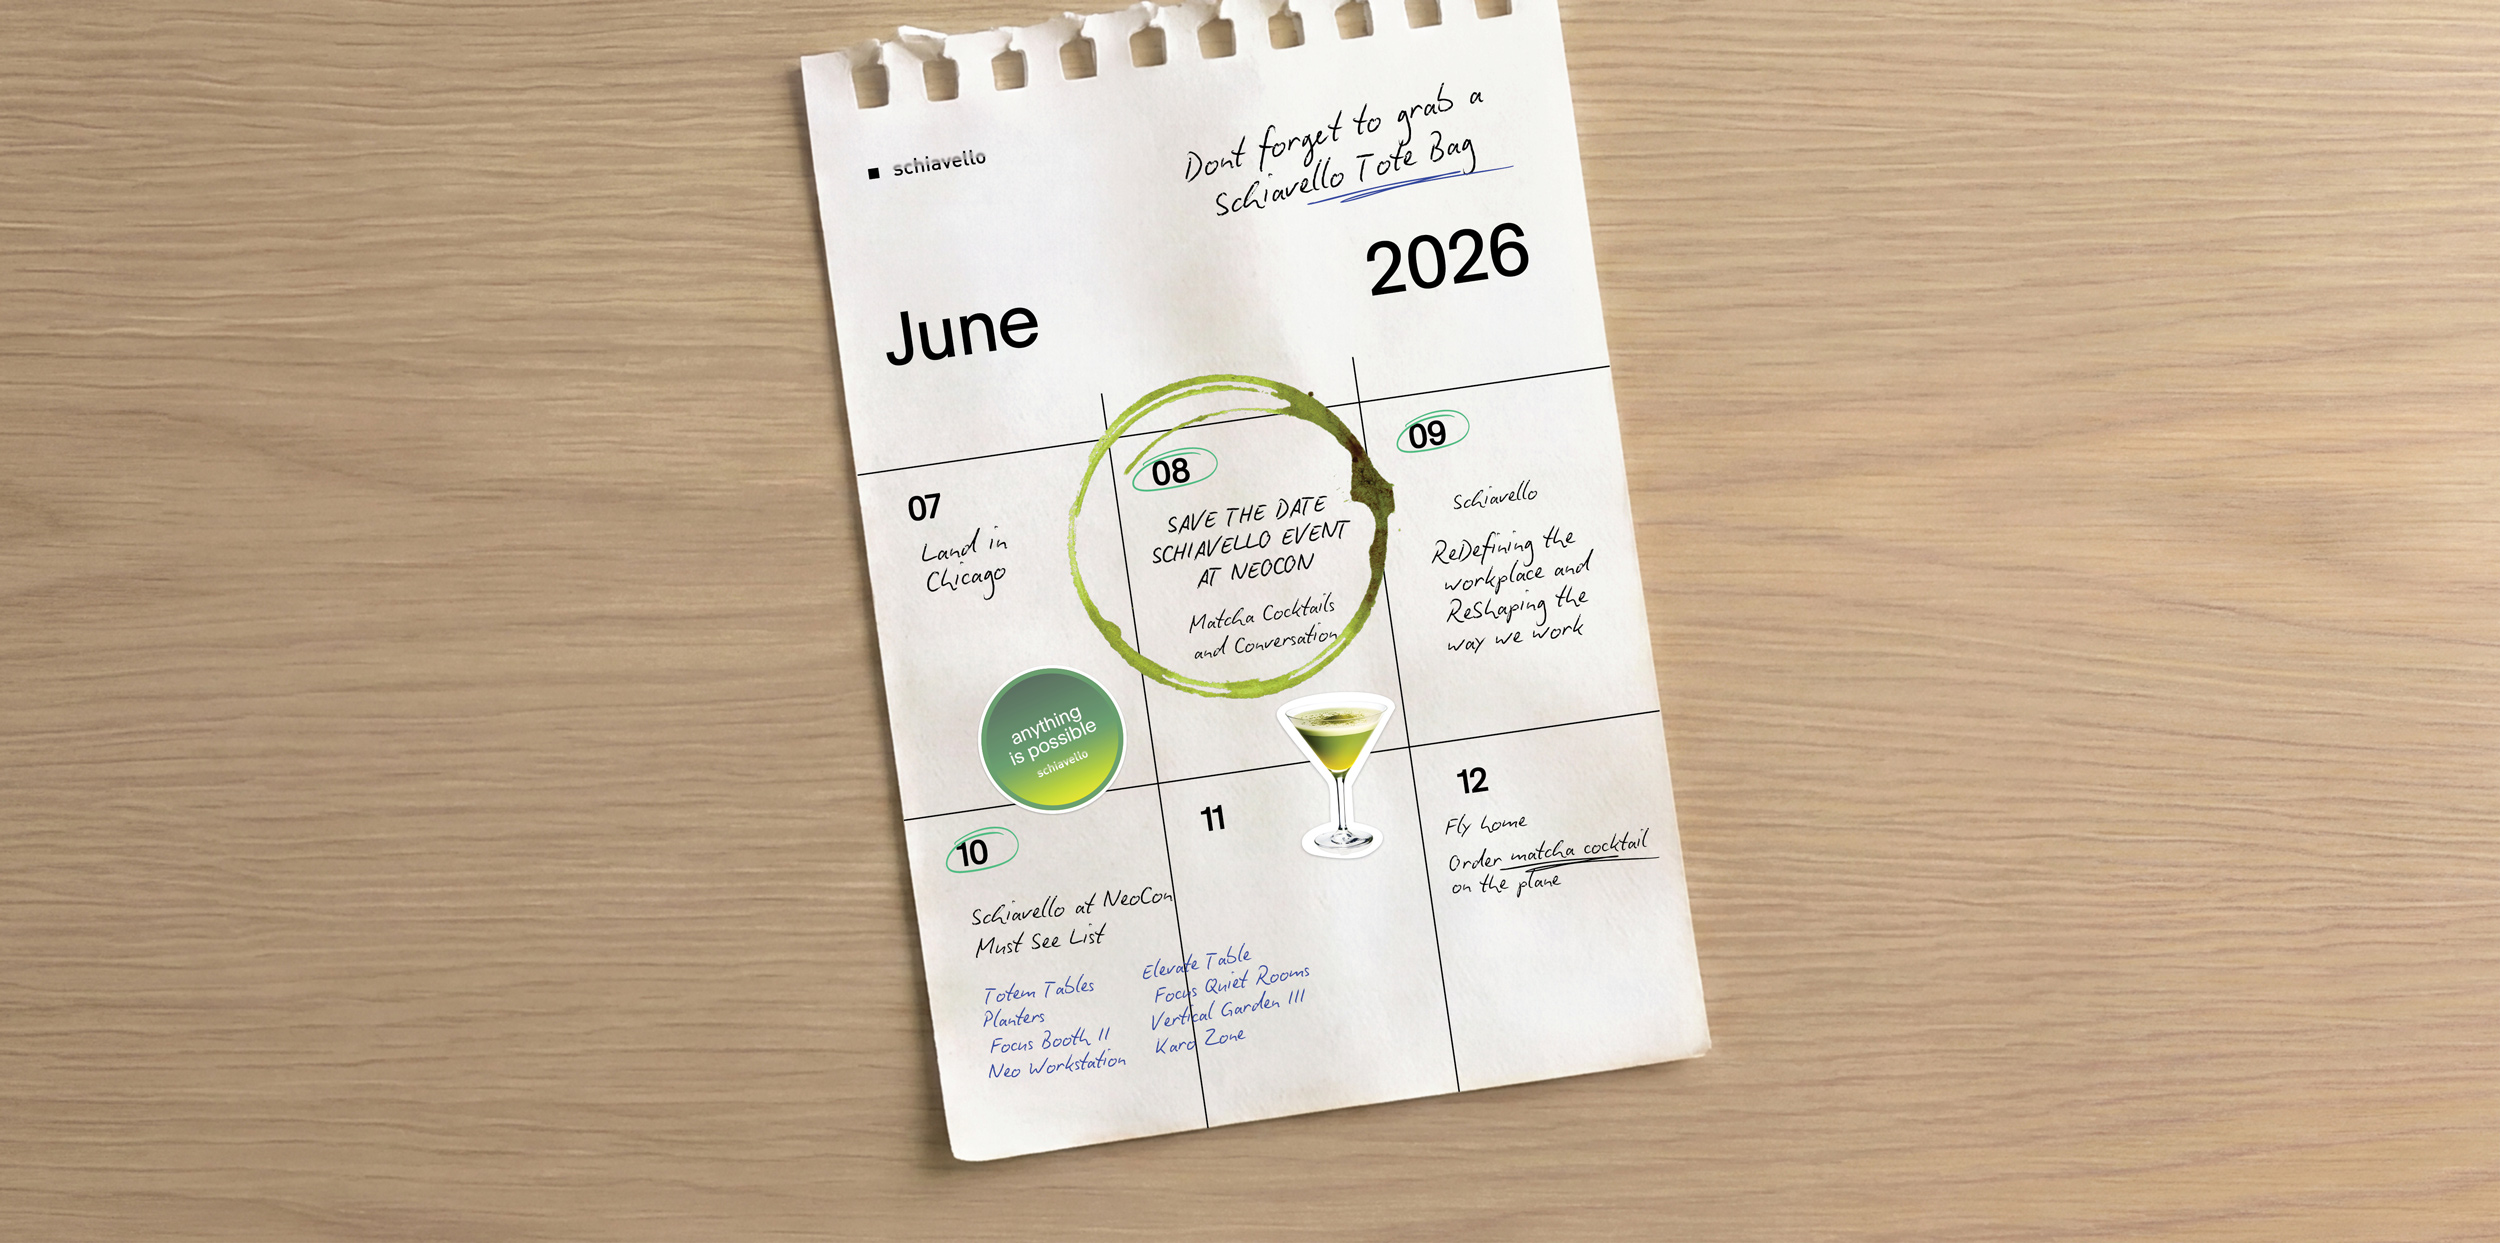 schiavello
Dont forget to grab a
Schiavello Tote Bag
2026
June
07
Land in
Chicago
08
SAVE THE DATE
SCHIAVELLO EVENT
AT NEOCON
Matcha Cocktails
and Conversation
09
Schiavello
ReDefining the
workplace and
ReShaping the
way we work
anything
is possible
schiavello
10
Schiavello at NeoCon
Must See List
Totem Tables
Planters
Focus Booth II
Neo Workstation
Elevate Table
Focus Quiet Rooms
Vertical Garden III
Karo Zone
11
12
Fly home
Order matcha cocktail
on the plane